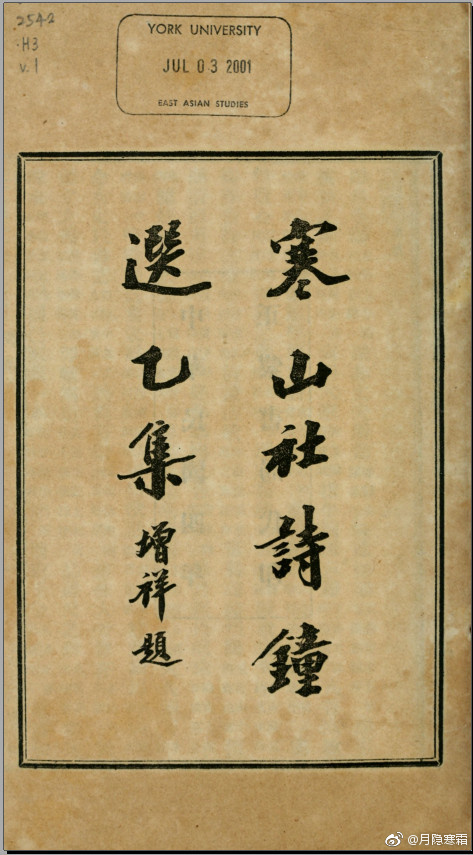 2542
.H3
v.1
YORK UNIVERSITY
JUL 03 2001
EAST ASIAN STUDIES
寒山社詩鐘
選乙集
增祥題
@月隐寒霜